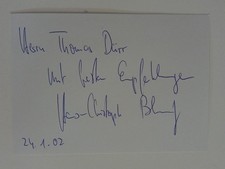 Herrn Thomas Dürr
mit besten Empfehlungen
Hans-Christoph
24.1.02